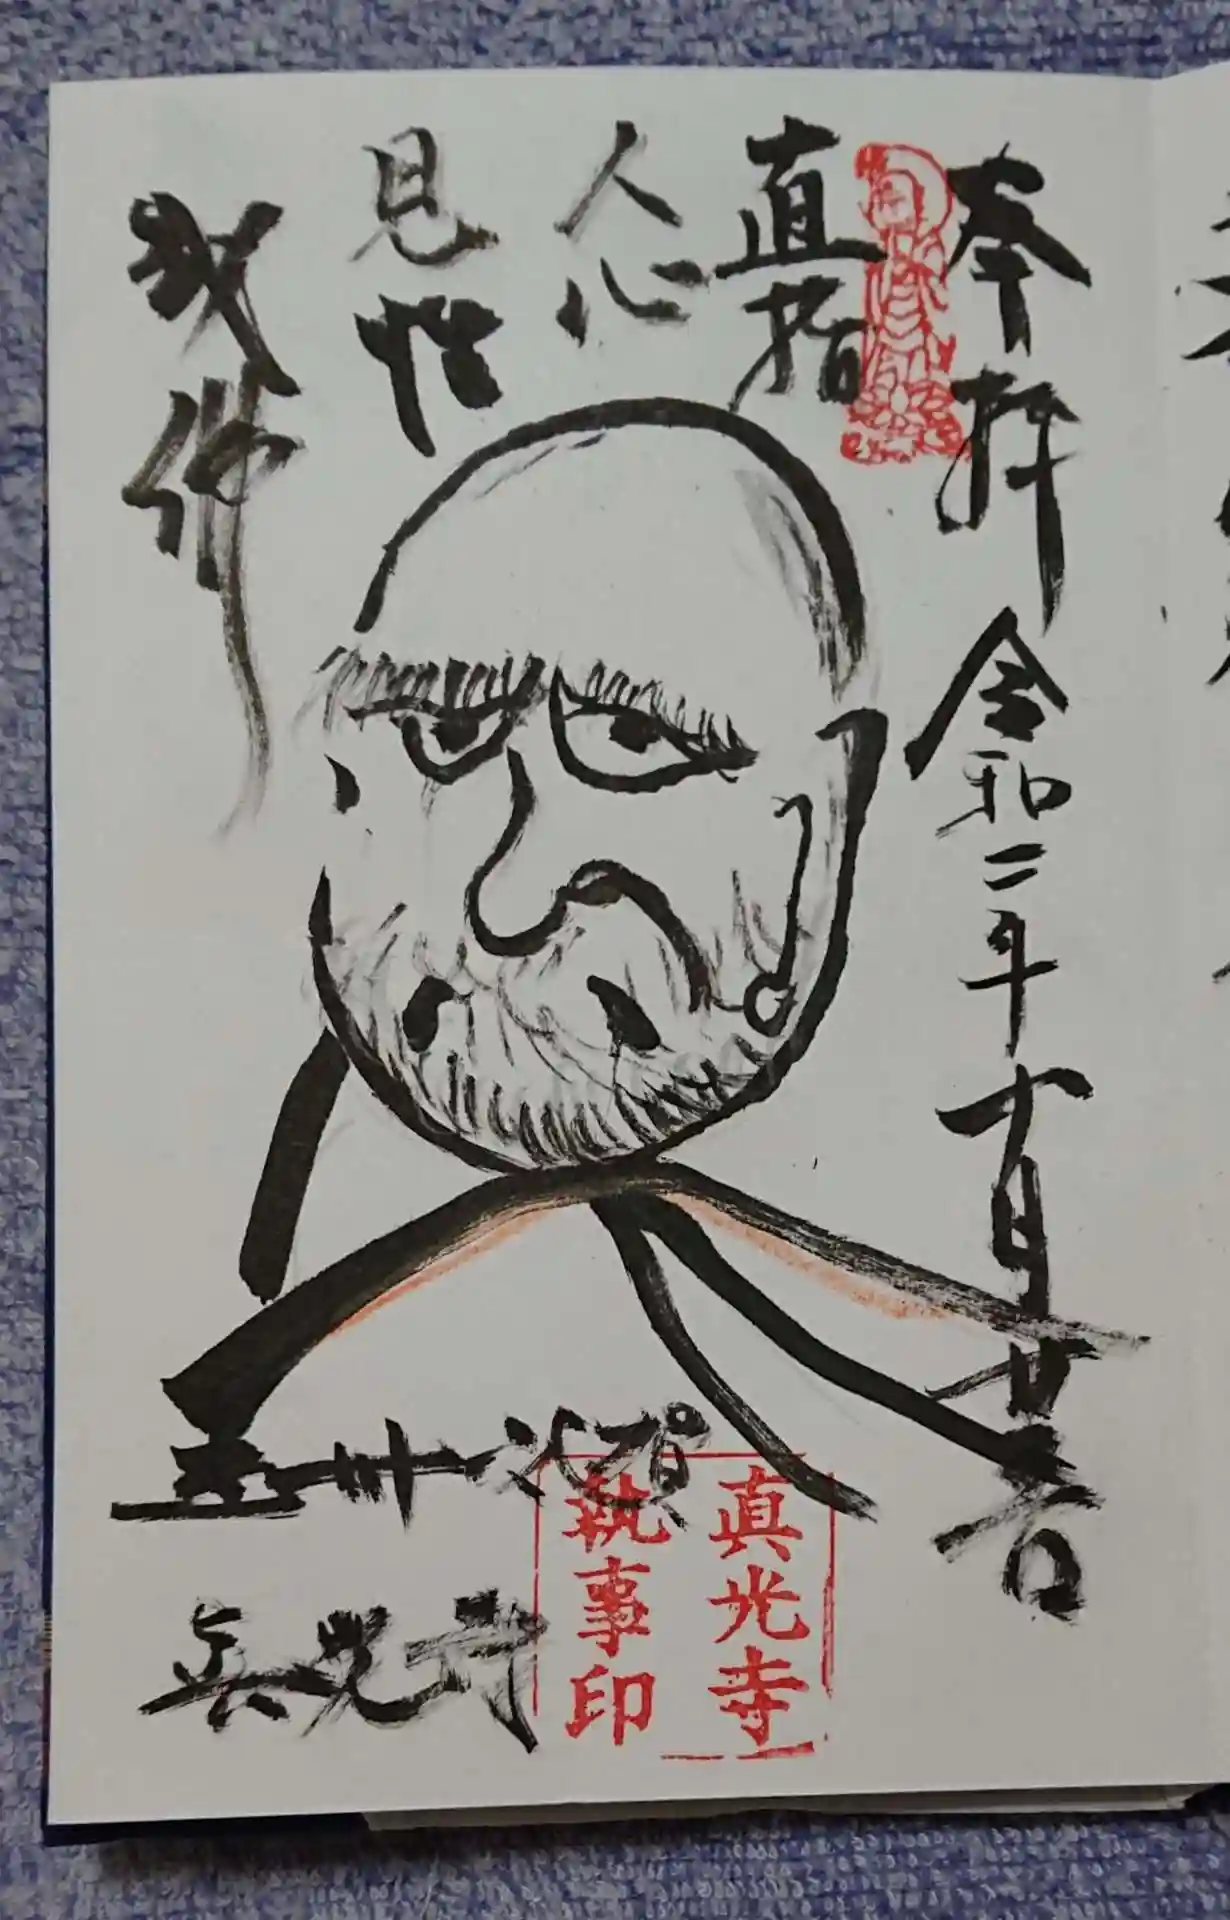 奉拝
令和二年十月廿一日
直指
人心
見性
成佛
真光寺
真光寺
執事印